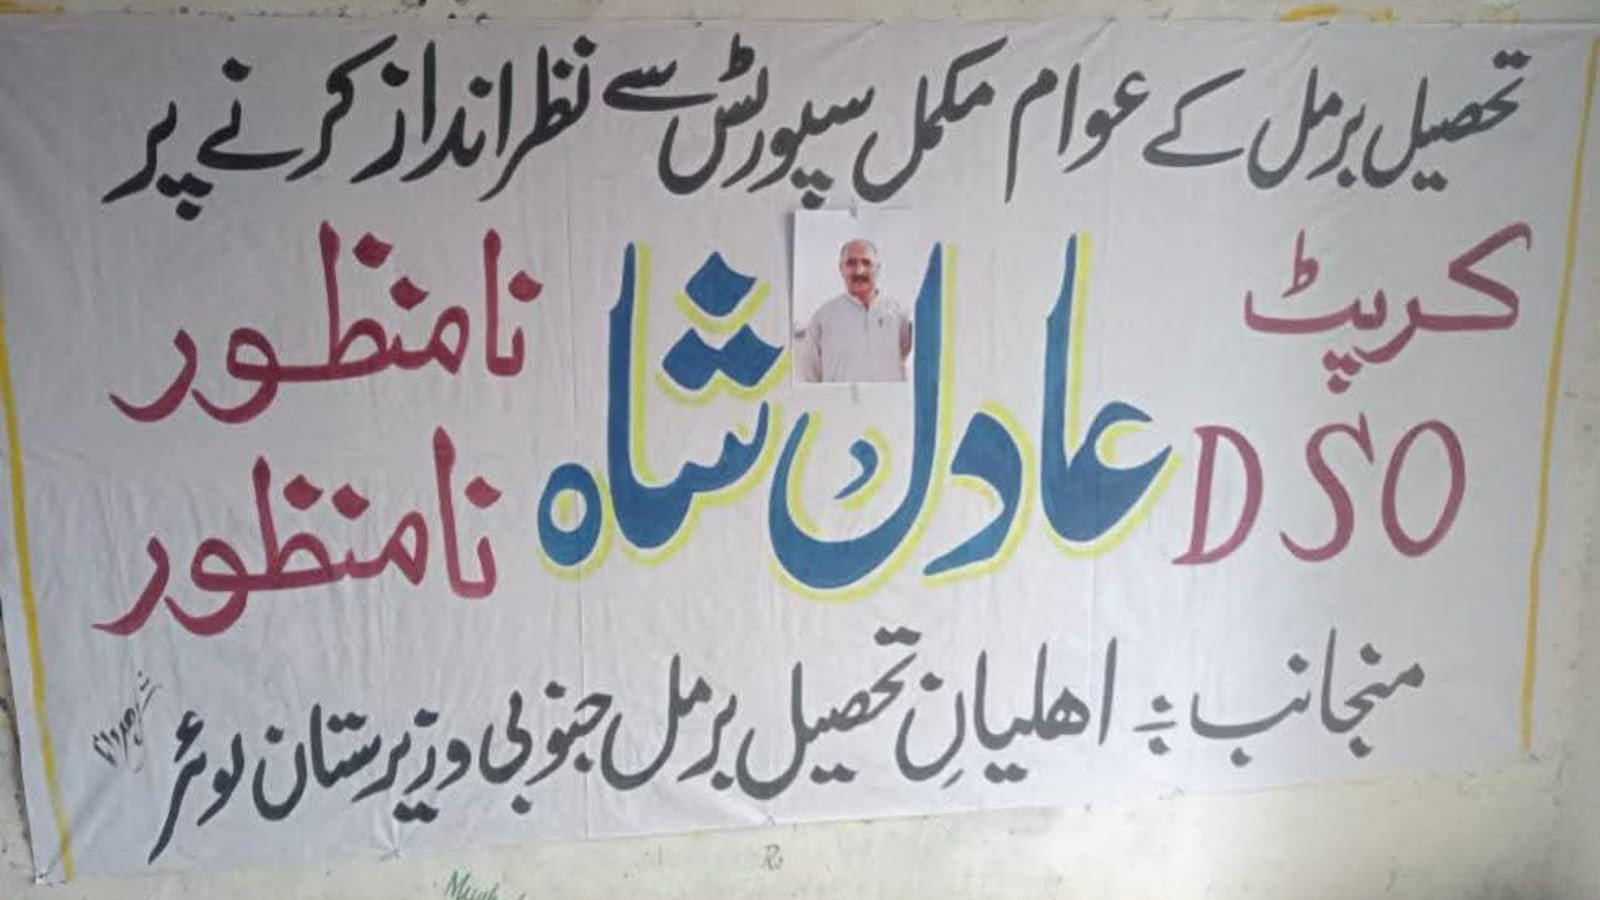 تحصیل برمل کے عوام مکمل سپورٹس سے نظر انداز کرنے پر
کرپٹ
DSO
عادل شاہ
نامنظور
نامنظور
منجانب : اھلیانِ تحصیل برمل جنوبی وزیرستان لوئر